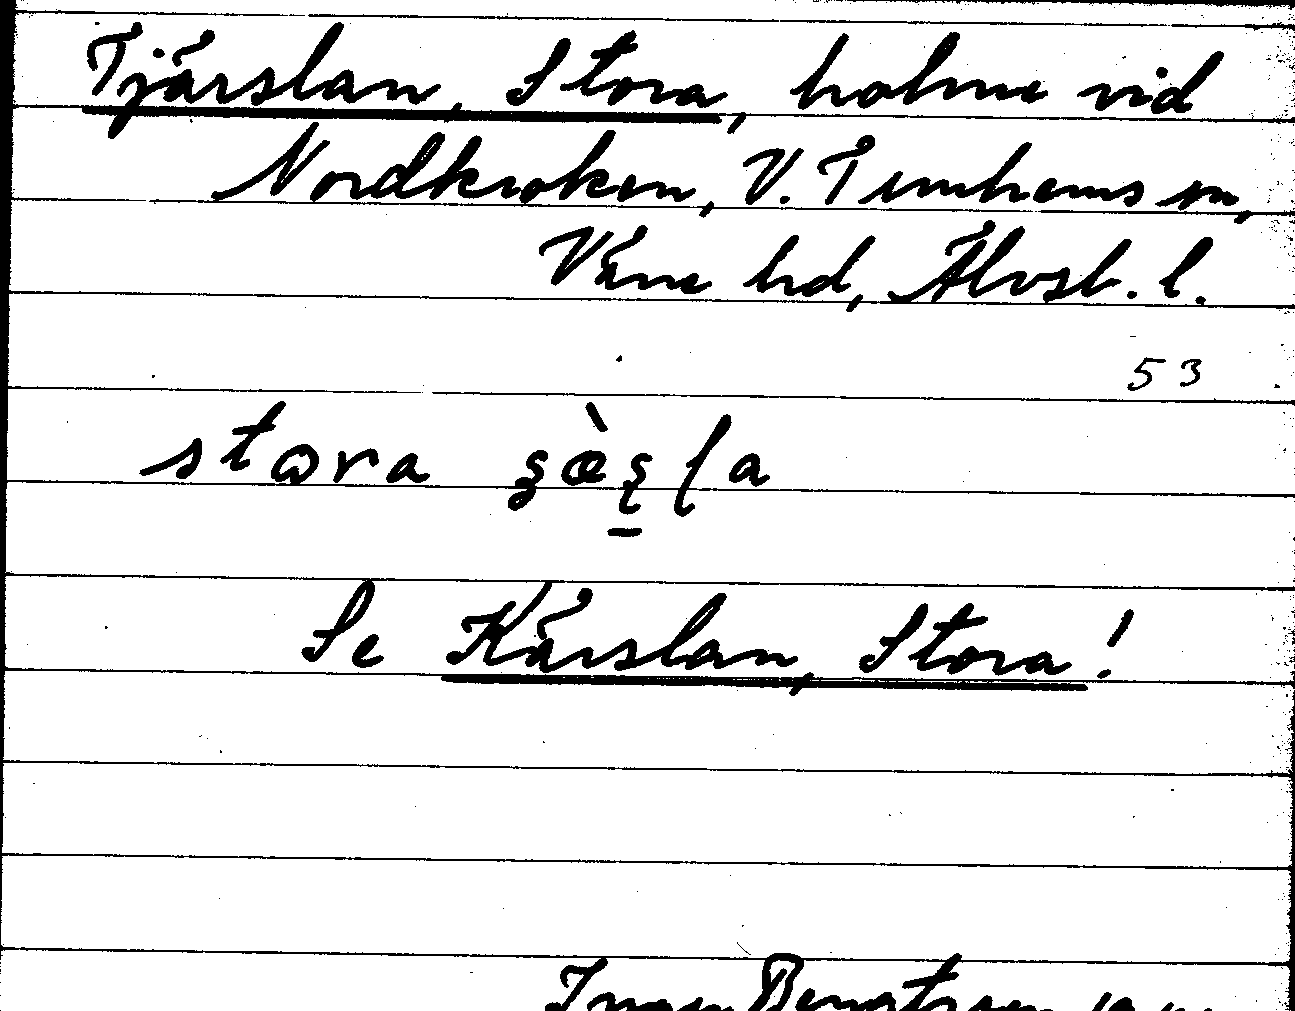 Tjärslan, Stora, holme vid
Nordkroken, V. Tunhems sn,
Väne hd, Älvsb. l.
53
Se Kärslan, Stora!